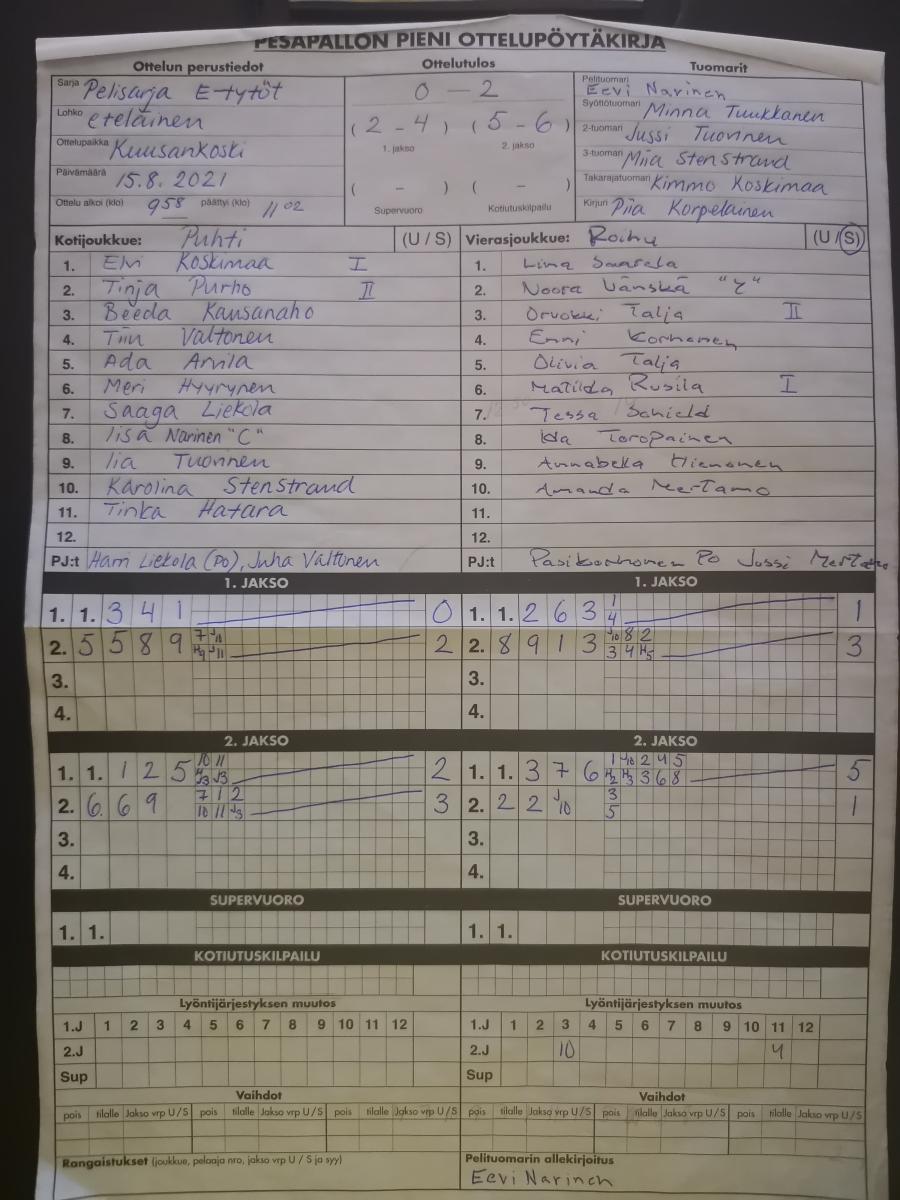 PESÄPALLON PIENI OTTELUPÖYTÄKIRJA
Ottelun perustiedot Ottelutulos Tuomarit
Sarja Pelisarja E-tytöt
Lohko eteläinen
Ottelupaikka Kuusankoski
Päivämäärä 15.8.2021
Ottelu alkoi (klo) 958 päättyi (klo) 1102
0 - 2
(2 - 4) (5 - 6)
1. jakso 2. jakso
( - ) ( - )
Supervuoro Kotiutuskilpailu
Pelituomari Eevi Narinen
Syöttötuomari Minna Tuukkanen
2-tuomari Jussi Tuovinen
3-tuomari Miia Stenstrand
Takarajatuomari Kimmo Koskimaa
Kirjuri Piia Korpelainen
Kotijoukkue: Puhti (U / S)
1. Elvi Koskimaa I
2. Tinja Purho II
3. Beeda Kausanaho
4. Tiin Valtonen
5. Ada Arvila
6. Meri Hyyrynen
7. Saaga Liekola
8. Iisa Narinen "C"
9. Iia Tuovinen
10. Karolina Stenstrand
11. Tinka Hatara
12.
PJ:t Harri Liekola (PO), Juha Valtonen
Vierasjoukkue: Roihu (U / S)
1. Lina Saarela
2. Noora Vänskä
3. Orvokki Talja II
4. Enni Korhonen
5. Olivia Talja
6. Matilda Rusila I
7. Tessa Schield
8. Ida Toropainen
9. Annabella Hienonen
10. Amanda Mertamo
11.
12.
PJ:t Pasi Korhonen PO Jussi Mertamo
1. JAKSO 1. JAKSO
1. 1. 3 4 1 0
2. 5 5 8 9 7 J11 2
H9 J11
3.
4.
1. 1. 2 6 3 1 1
4
2. 8 9 1 3 J10 8 2 3
3 4 H5
3.
4.
2. JAKSO 2. JAKSO
1. 1. 1 2 5 10 11 2
J3
2. 6 6 9 7 1 2 3
10 11 J3
3.
4.
1. 1. 3 7 6 1 J10 2 4 5 5
H2 H3 3 6 8
2. 2 2 J10 3 1
5
3.
4.
SUPERVUORO SUPERVUORO
1. 1. 1. 1.
KOTIUTUSKILPAILU KOTIUTUSKILPAILU
Lyöntijärjestyksen muutos Lyöntijärjestyksen muutos
1.J 1 2 3 4 5 6 7 8 9 10 11 12 1.J 1 2 3 4 5 6 7 8 9 10 11 12
2.J 2.J 10 4
Sup Sup
Vaihdot Vaihdot
pois tilalle Jakso vrp U / S pois tilalle Jakso vrp U / S pois tilalle Jakso vrp U / S pois tilalle Jakso vrp U / S pois tilalle Jakso vrp U / S pois tilalle Jakso vrp U / S
Rangaistukset (joukkue, pelaaja nro, jakso vrp U / S ja syy)
Pelituomarin allekirjoitus
Eevi Narinen